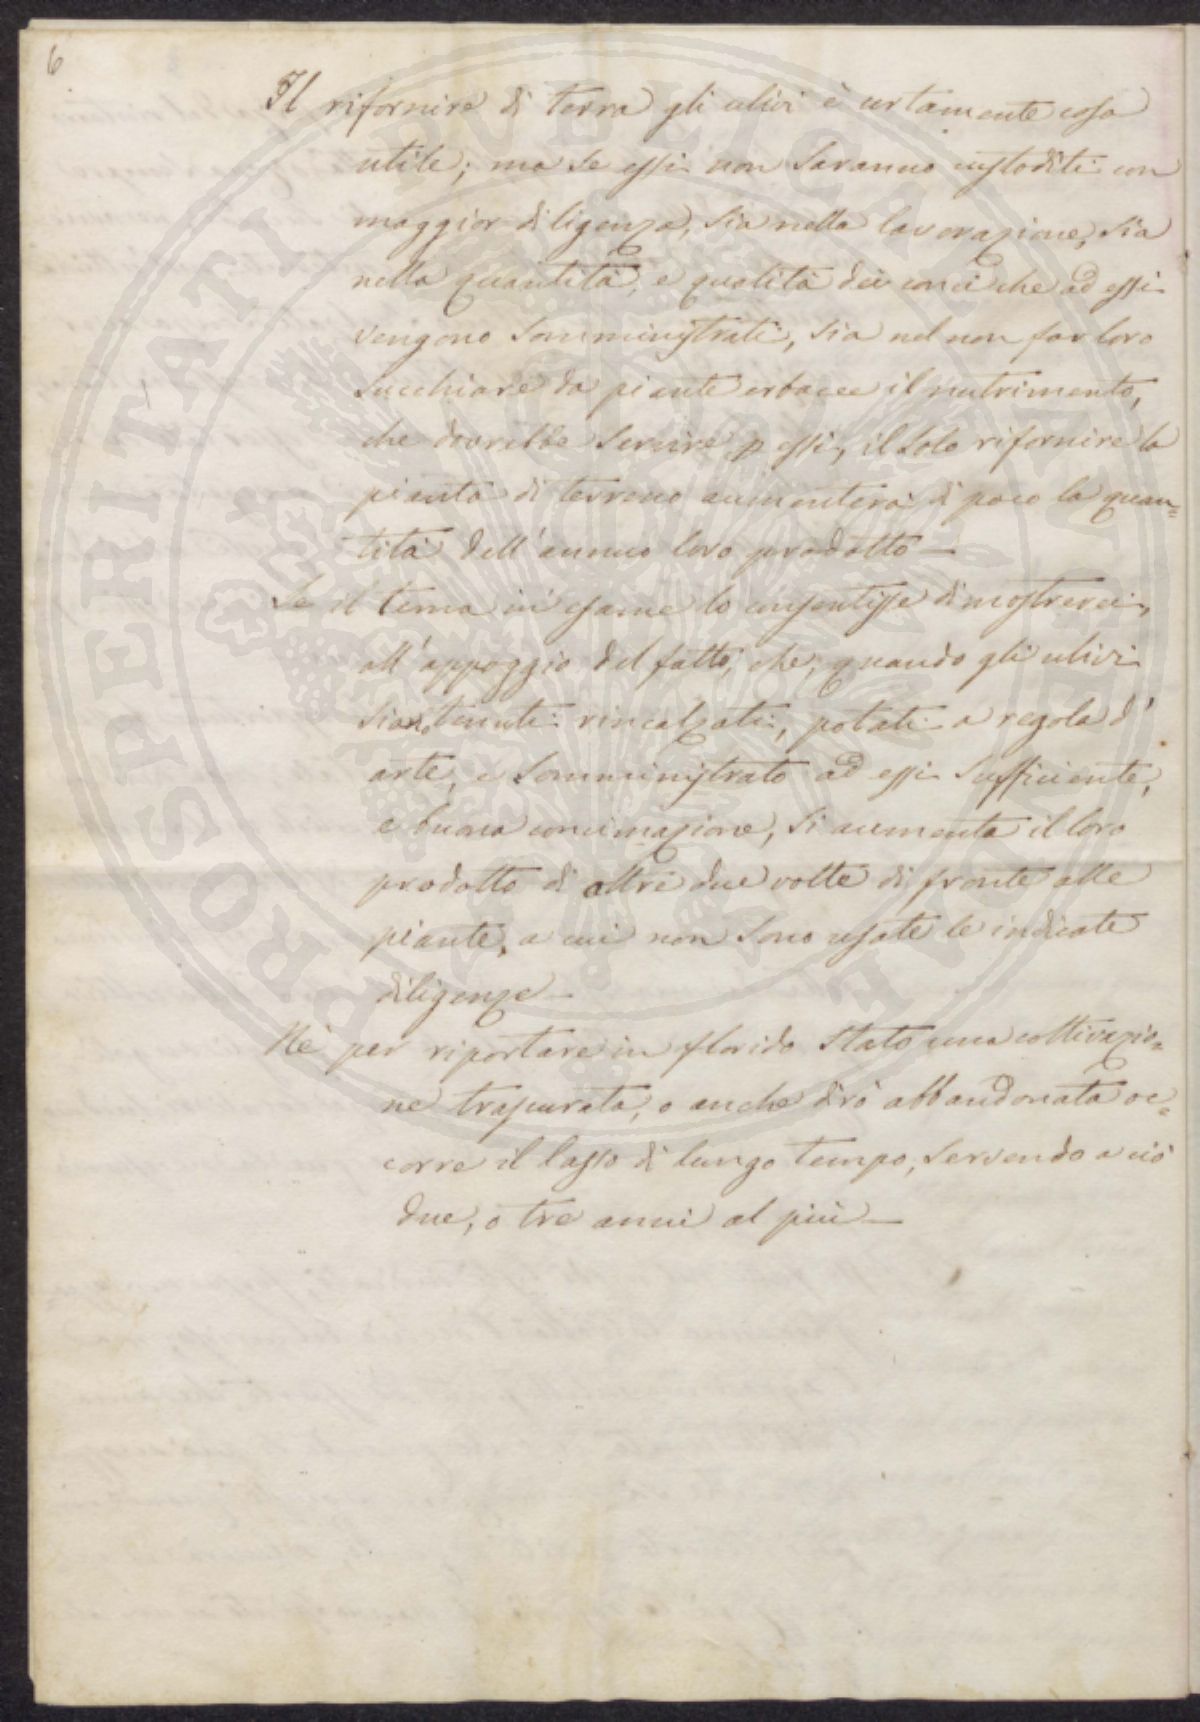 6
Il rifornire di terra gli ulivi è certamente cosa
utile; ma se essi non saranno custoditi con
maggior diligenza, sia nella lavorazione, sia
nella quantità, e qualità dei conci che ad essi
vengono somministrati, sia nel non far loro
succhiare da piante erbacee il nutrimento,
che dovrebbe servire p essi, il solo rifornire la
pianta di terreno aumenterà di poco la quan=
tità dell'annuo loro prodotto —
Se il tema in esame lo consentisse dimostrerei,
all'appoggio del fatto, che, quando gli ulivi
siano tenuti rincalzati, potati a regola d'
arte, e somministrato ad essi sufficiente,
e buona concimazione, si aumenta il loro
prodotto di oltre due volte di fronte alle
piante, a cui non sono usate le indicate
diligenze —
Nè per riportare in florido stato una coltivazio=
ne trascurata, o anche dirò abbandonata oc=
corre il lasso di lungo tempo, servendo a ciò
due, o tre anni al più —
PUBLICAE
PROSPERITATI